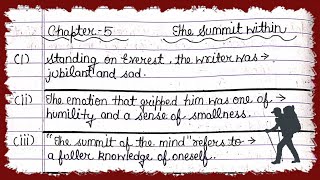 Chapter-5 The summit within
(i) Standing on Everest, the writer was →
jubilant and sad.
(ii) The emotion that gripped him was one of →
humility and a sense of smallness.
(iii) "The summit of the mind" refers to →
a fuller knowledge of oneself..